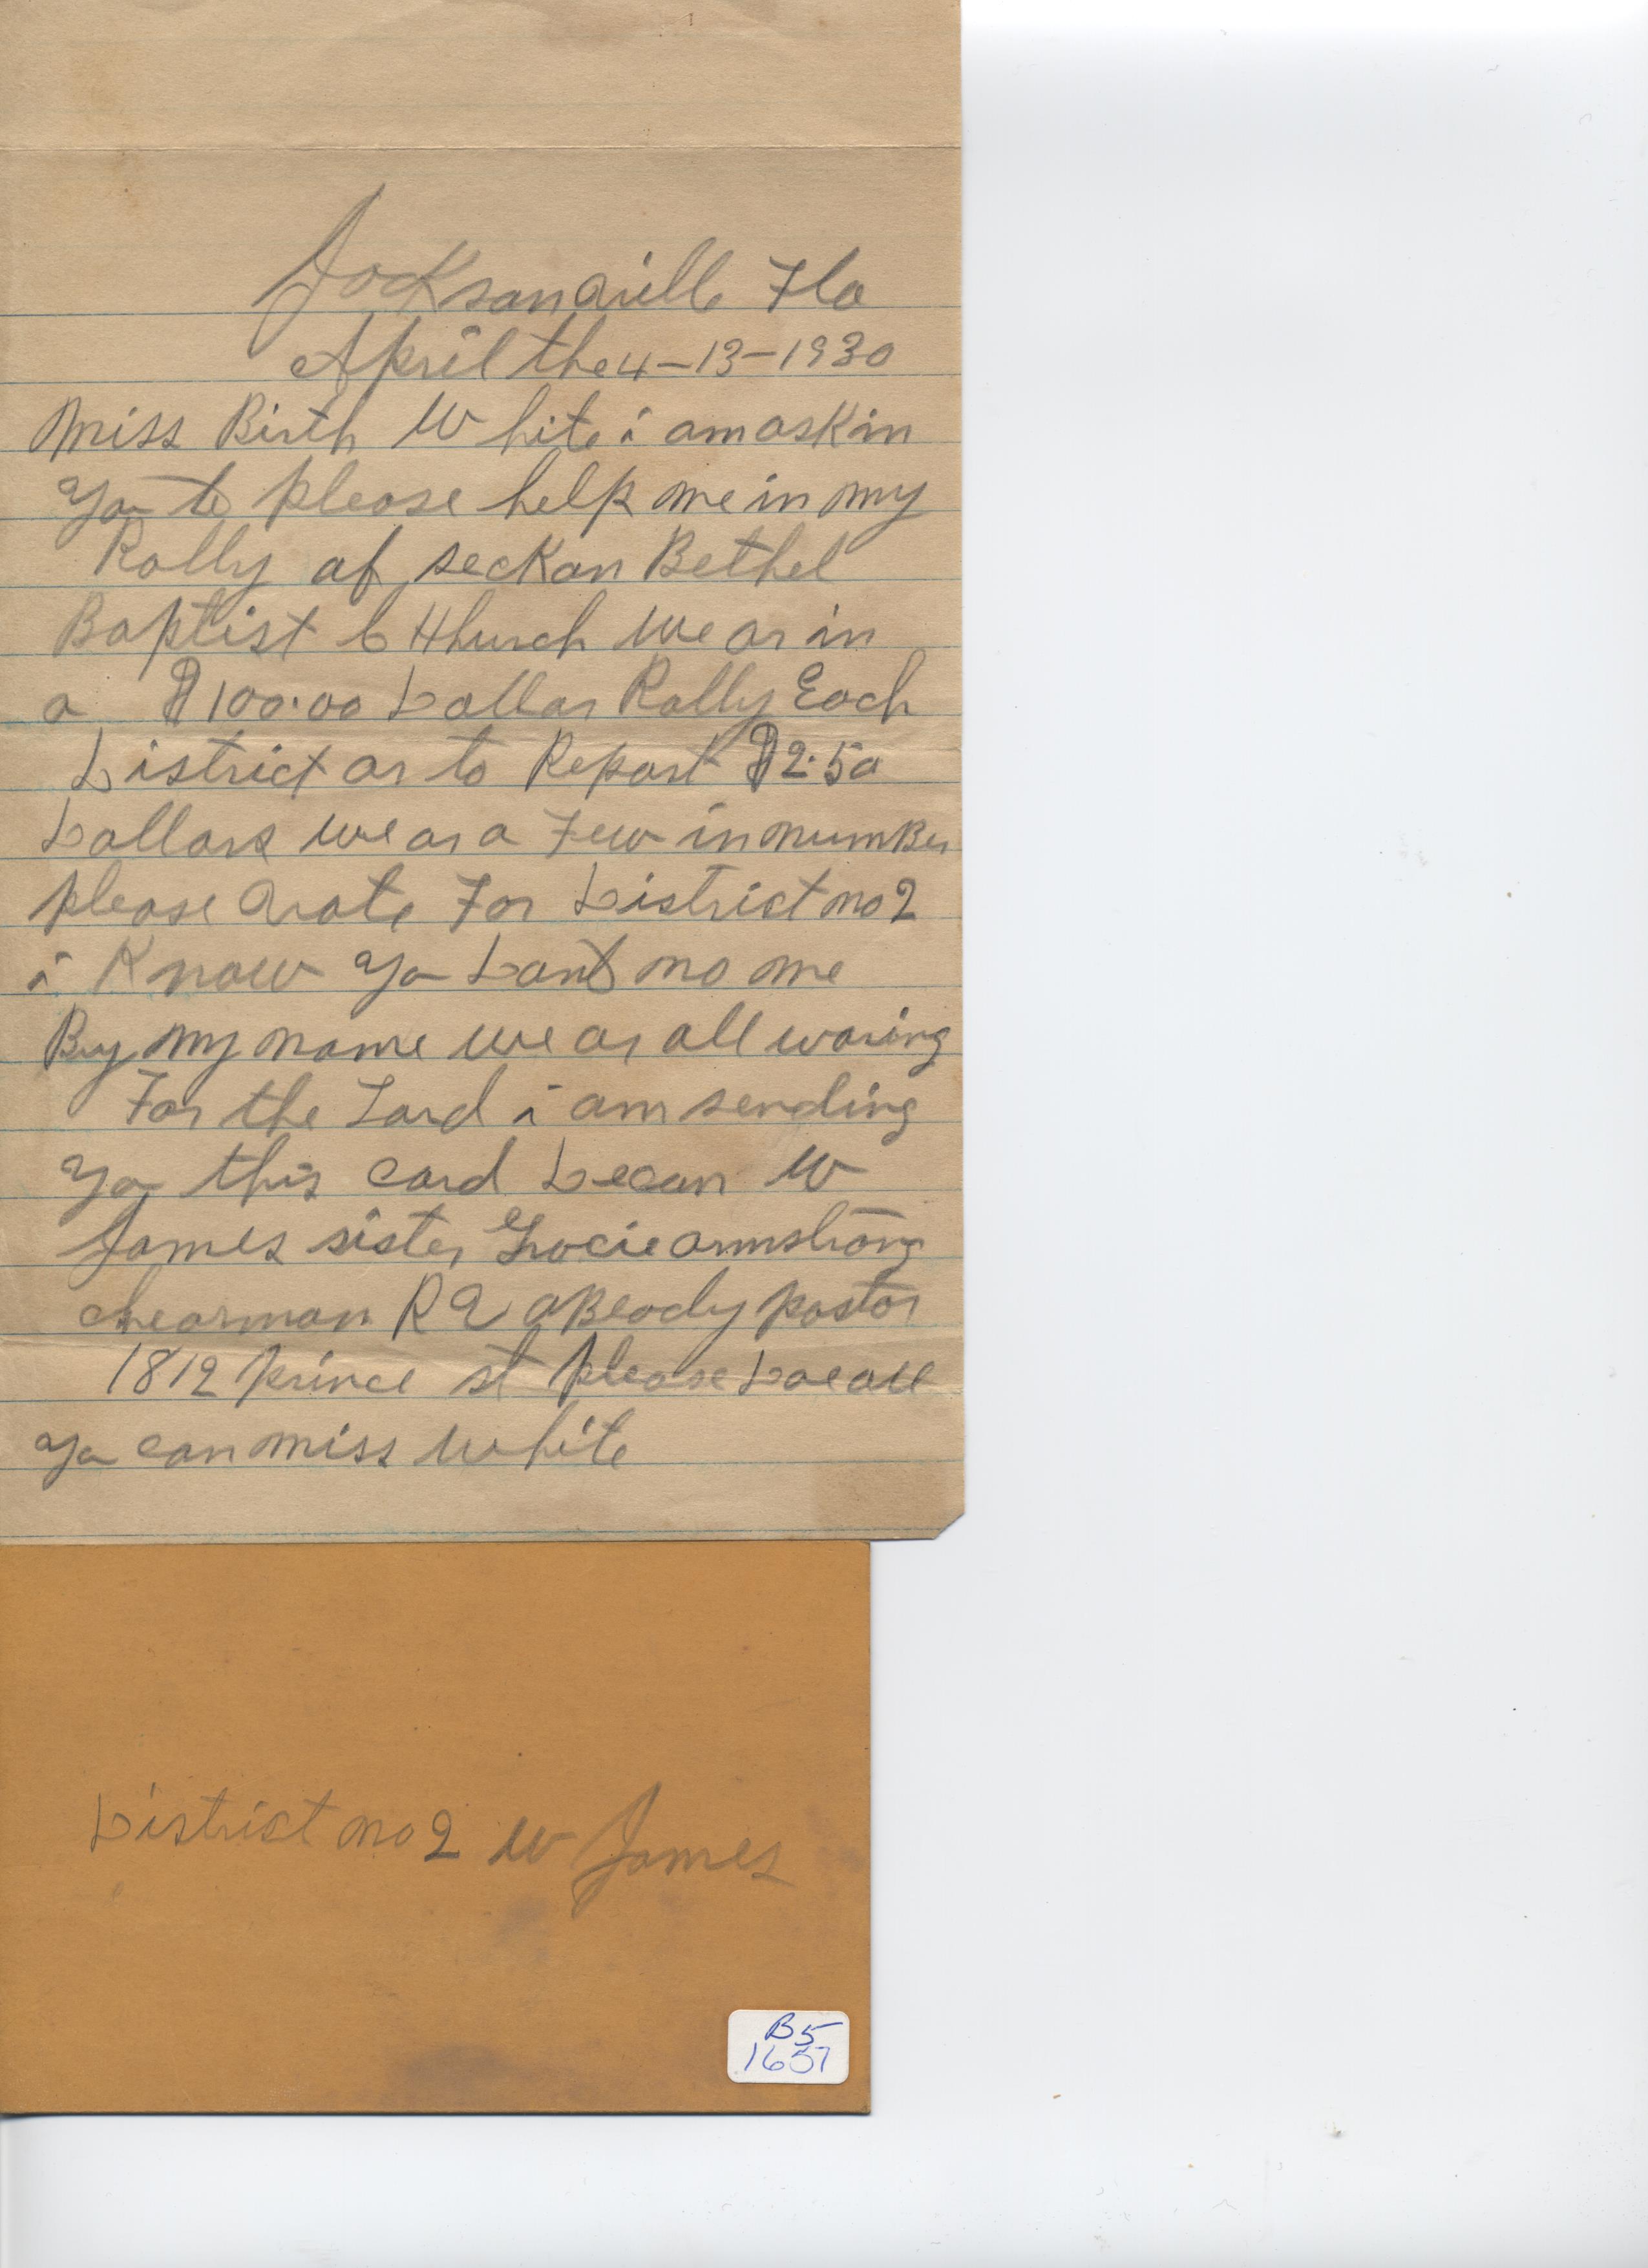 Jocksanvill Fla
April the 4-13-1930
Miss Birth White i am askin
you to please help me in my
Rally of seckan Bethel
Baptist C Hhurch we ar in
a $100.00 Dollar Rally Each
District ar to Repart $2.50
Dallars we ar a Few in numBer
please vate For District no 2
i Know you Dant no me
By my name we ar all waring
For the Lard i am sending
you this card Decan W
James sister Gracie armstrong
chearman R 
pastor
1812 prince st please Doe all
you can miss White
District no 2 W James
B5
1657